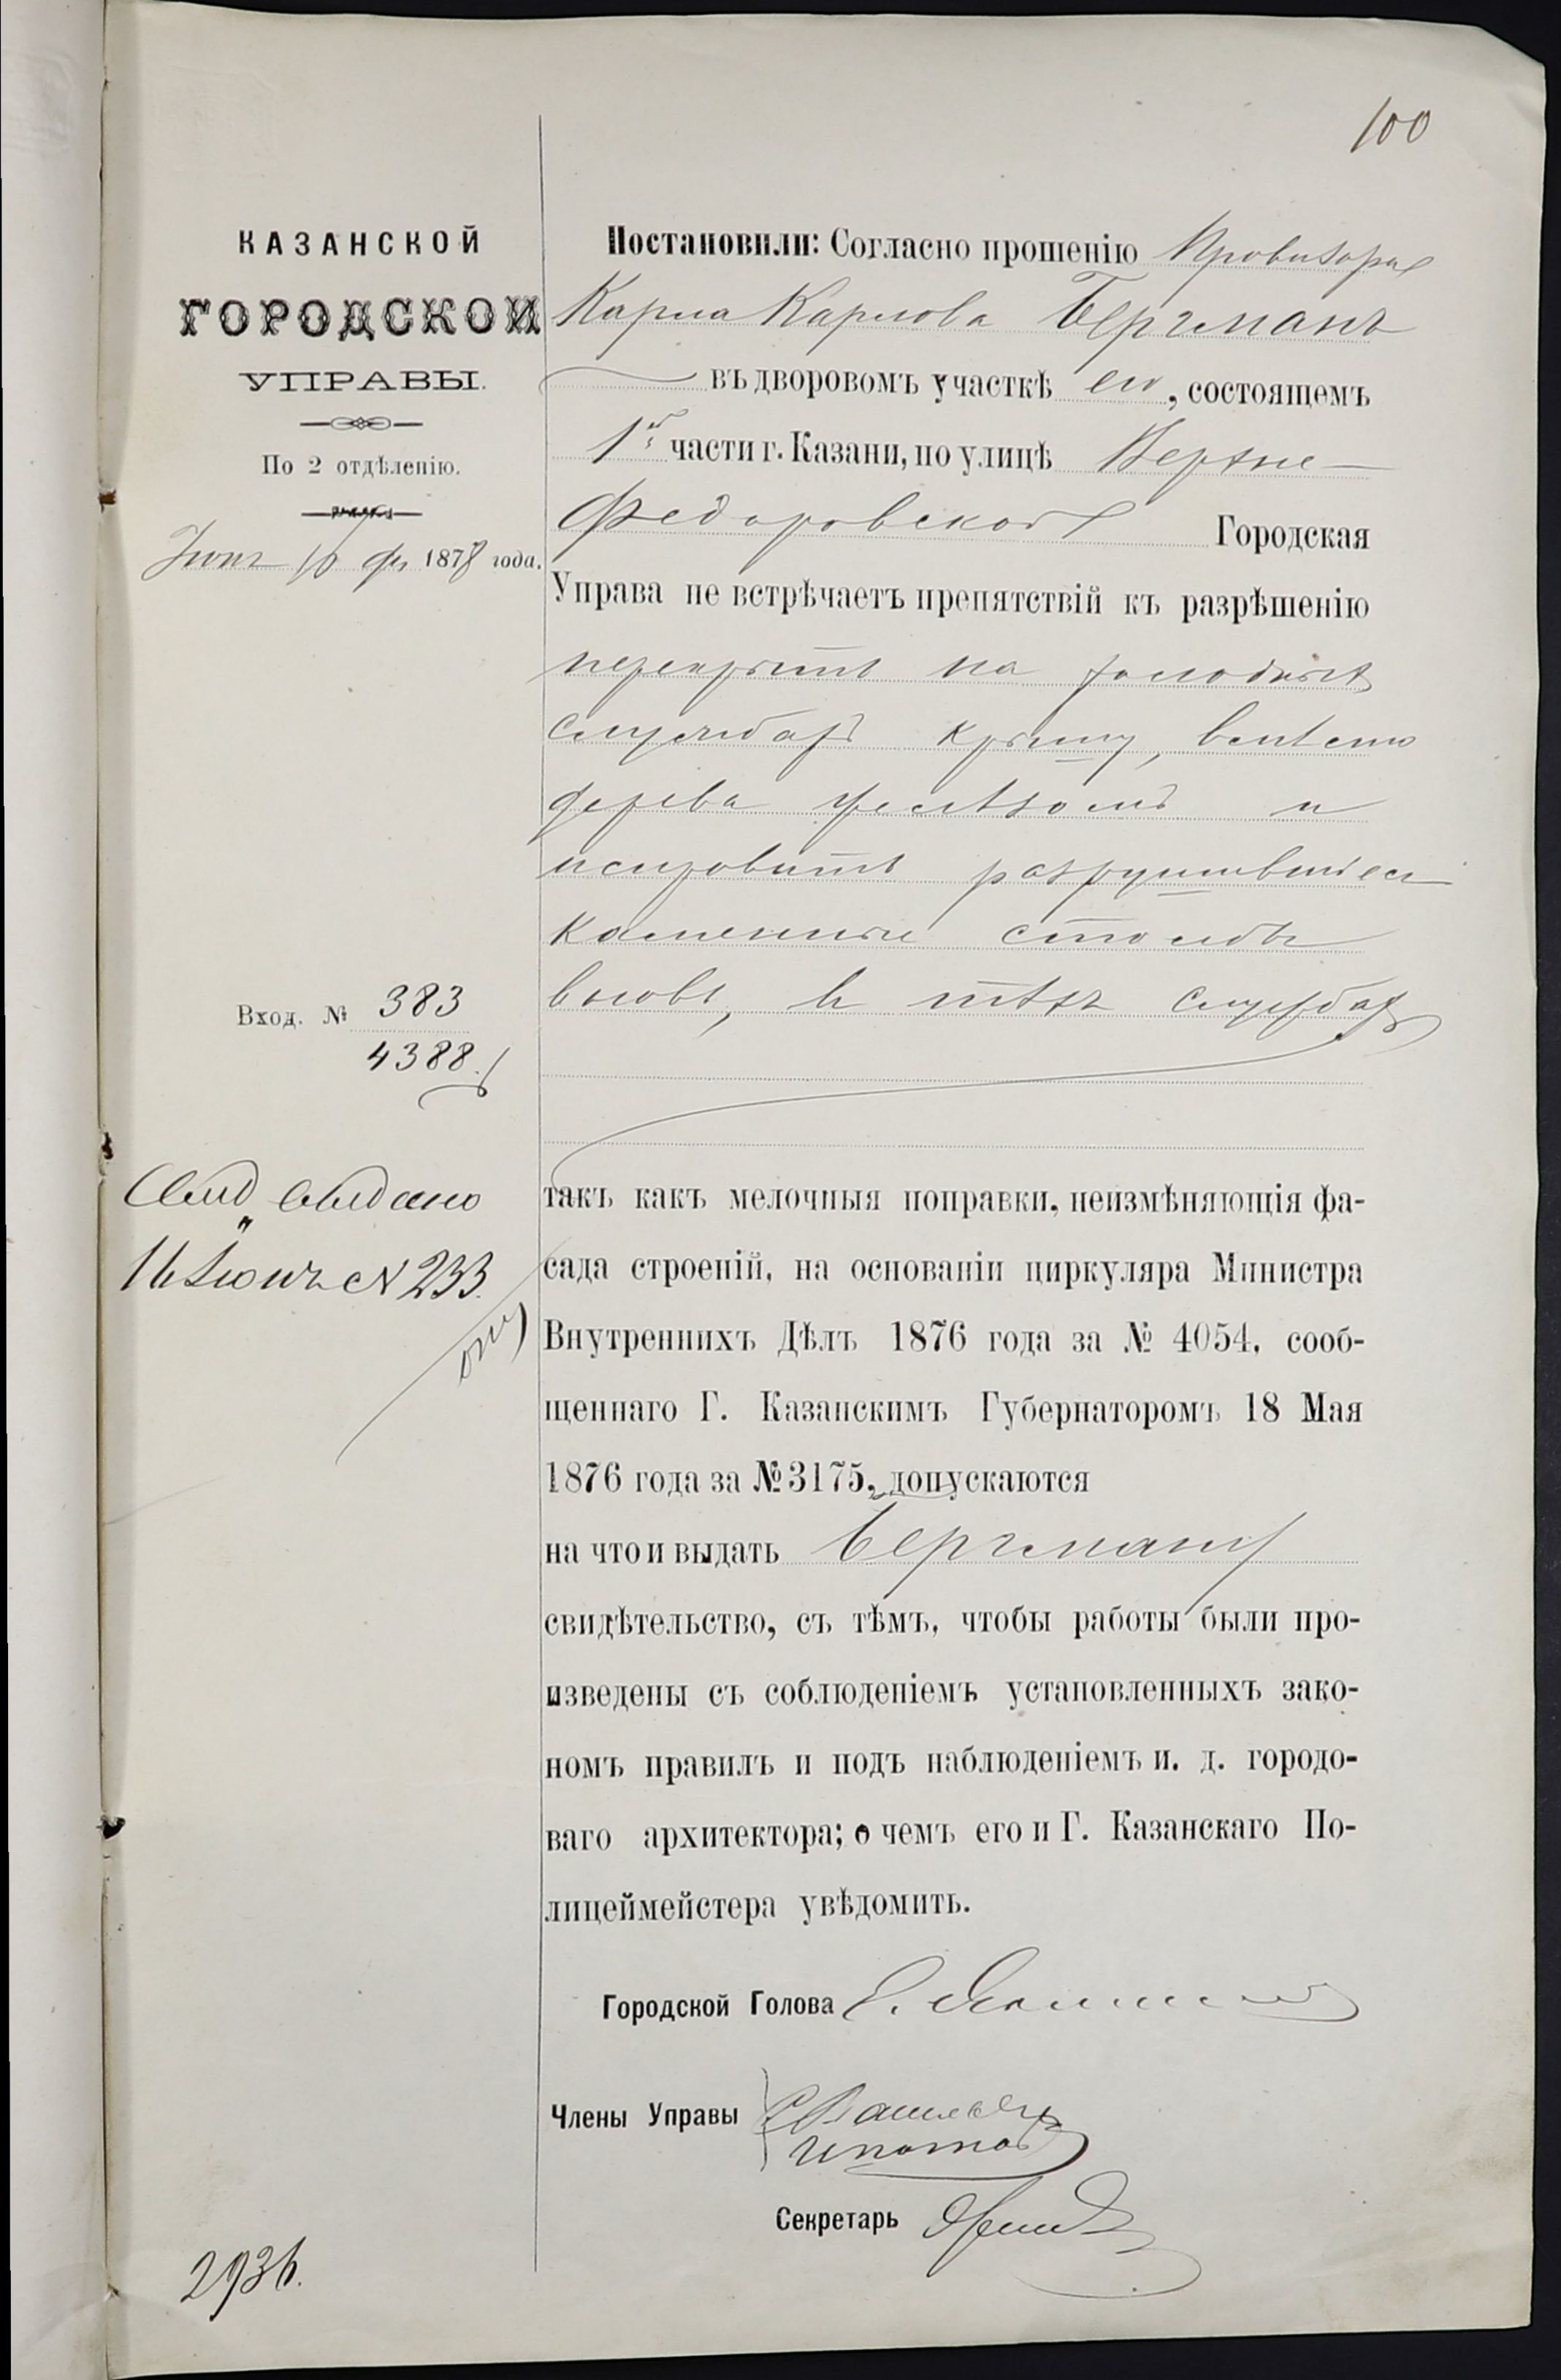 100
КАЗАНСКОЙ
ГОРОДСКОЙ
УПРАВЫ.
По 2 отдѣленію.
Іюня 16 дн 1878 года.
Вход. № 383
4388
Свид. выдано
16 Іюня № 233.
2936.
Постановили: Согласно прошенію Провизора
Карла Карлова Бергманъ
въ дворовомъ участкѣ его, состоящемъ
1й части г. Казани, по улицѣ Верхне-
Федоровской Городская
Управа не встрѣчаетъ препятствій къ разрѣшенію
перекрыть на холодныхъ
службахъ крышу, вмѣсто
дерева желѣзомъ и
исправить разрушившіеся
каменные столбы
вновь, въ тѣхъ службахъ
такъ какъ мелочныя поправки, неизмѣняющія фа-
сада строеній, на основаніи циркуляра Министра
Внутреннихъ Дѣлъ 1876 года за № 4054, сооб-
щеннаго Г. Казанскимъ Губернаторомъ 18 Мая
1876 года за № 3175, допускаются
на что и выдать Бергману
свидѣтельство, съ тѣмъ, чтобы работы были про-
изведены съ соблюденіемъ установленныхъ зако-
номъ правилъ и подъ наблюденіемъ и. д. городо-
ваго архитектора; о чемъ его и Г. Казанскаго По-
лицеймейстера увѣдомить.
Городской Голова
Члены Управы
Секретарь